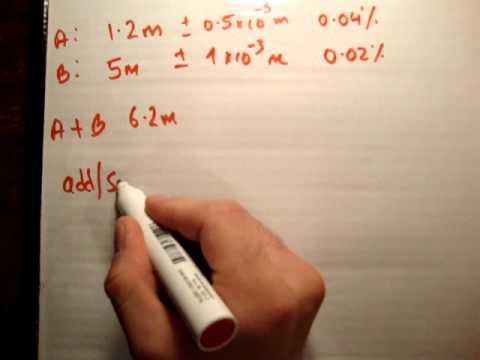 A: 1.2m ± 0.5×10⁻³ m 0.04%
B: 5m ± 1×10⁻³ m 0.02%
A+B 6.2m
add/s